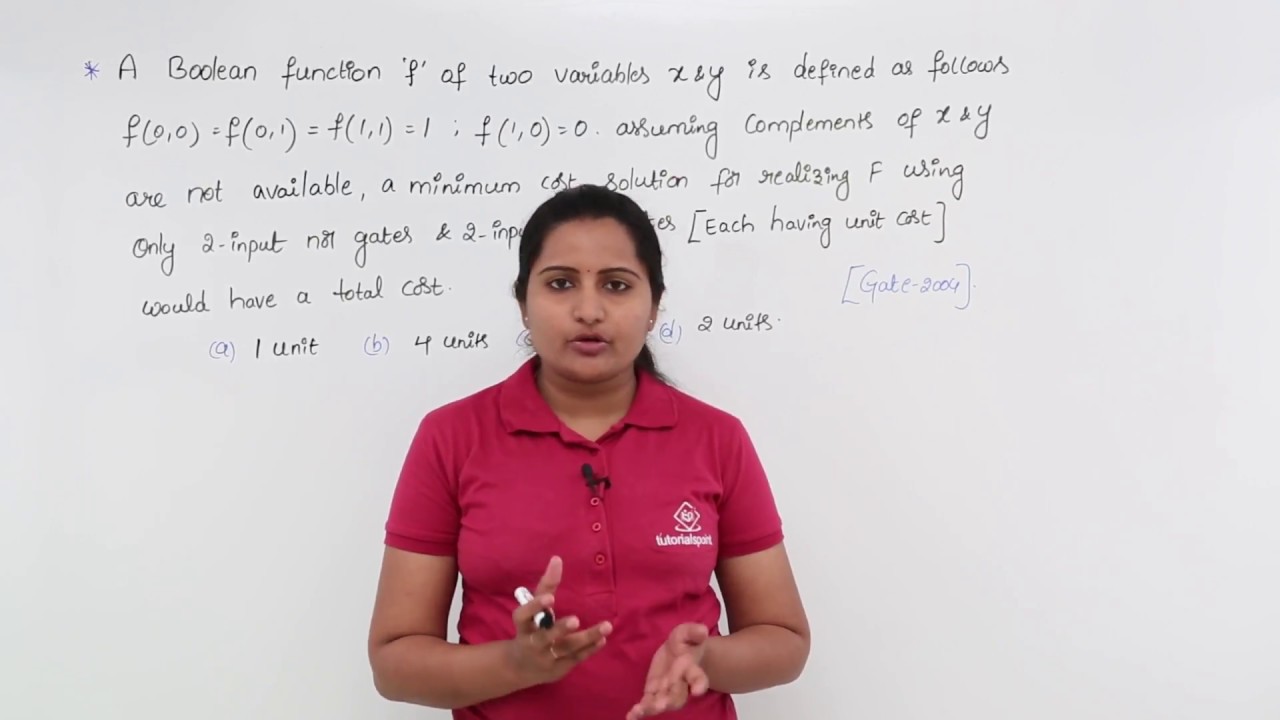 * A Boolean function 'f' of two variables x & y is defined as follows
f(0,0) = f(0,1) = f(1,1) = 1 ; f(1,0) = 0. assuming complements of x & y
are not available, a minimum cost solution for realizing F using
Only 2-input nor gates & 2-inp [Each having unit cost]
would have a total cost.
[Gate-2004].
(a) 1 unit (b) 4 units (d) 2 units.
tutorialspoint